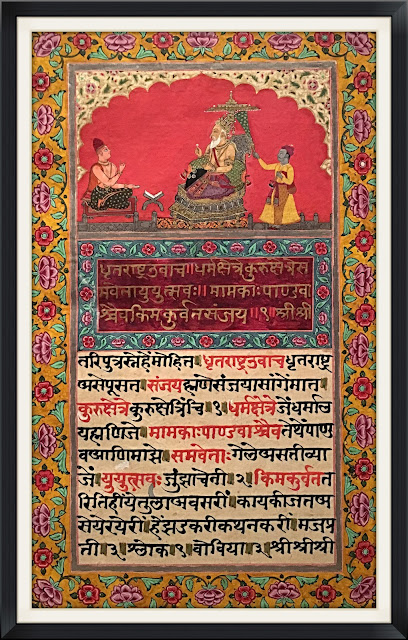 धृतराष्ट्रउवाच॥धर्मक्षेत्रेकुरुक्षेत्रेस
मवेतायुयुत्सवः॥मामकाःपाण्डवा
श्चैवकिमकुर्वतसंजय॥१॥श्रीश्री
तरिपुत्रस्नेहेंमोहित॥धृतराष्ट्रउवाच॥धृतराष्ट्र
असेपूसत॥संजय॥ह्मणेसंजयासांगेमात॥
कुरुक्षेत्रे॥कुरुक्षेत्रिंचि॥१॥धर्मक्षेत्रे॥जेंधर्माल
यह्मणिजे॥मामकाःपाण्डवाश्चैव॥तेथेंपाण्ड
वआणिमाझे॥समवेताः॥गेलेअसतीव्या
जें॥युयुत्सवः॥जुंझाचेनी॥२॥किमकुर्वत॥त
रितिहींयेतुलाअवसरीं॥कायकीजतअ
सेयेरयेरीं॥हेंझडकरीकथनकरी॥मजप्र
ती॥३॥श्लोक॥१॥वोविया॥३॥श्रीश्रीश्री